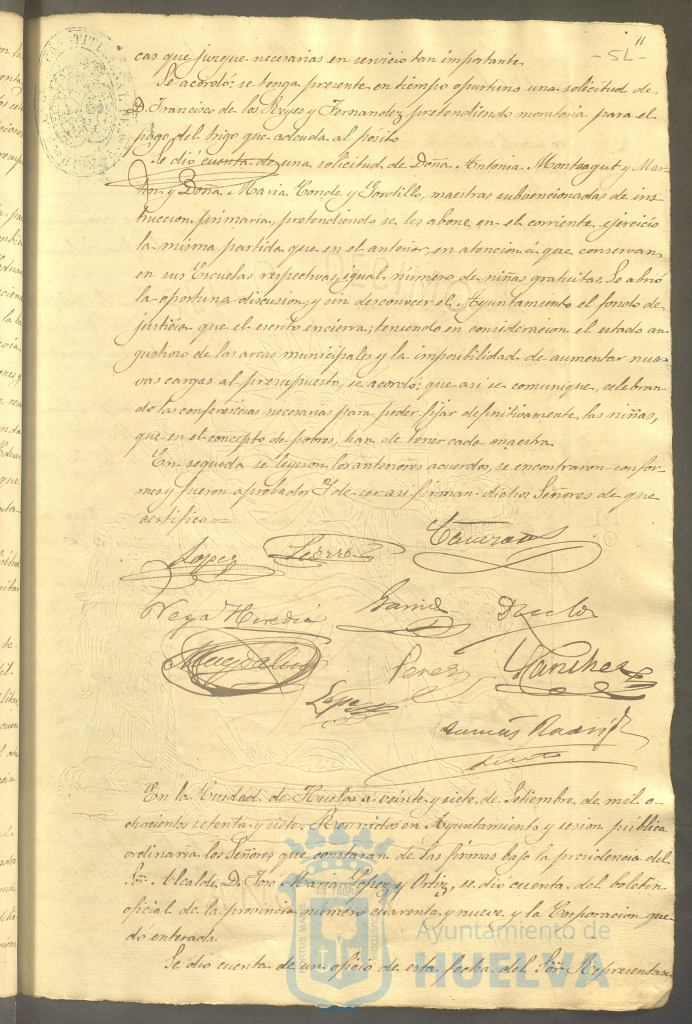 11
-51-
cas que juzgue necesarias en servicio tan importante.
Se acordó: se tenga presente en tiempo oportuno una solicitud de
D. Francisco de los Reyes y Fernandez pretendiendo moratoria para el
pago del trigo que adeuda al pósito
Se dió cuenta de una solicitud de Doña Antonia Montsagut y Mar-
tin y Doña Maria Conde y Gordillo, maestras subvencionadas de ins-
truccion primaria, pretendiendo se les abone en el corriente ejercicio
la misma partida que en el anterior, en atencion á que conservan
en sus Escuelas respectivas, igual número de niñas gratuitas. Se abrió
la oportuna discusion, y sin desconocer el Ayuntamiento el fondo de
justicia que el escrito encierra, teniendo en consideracion el estado an
gustioso de las arcas municipales y la imposibilidad de aumentar nue-
vas cargas al presupuesto, se acordó: que asi se comunique, celebran-
do las conferencias necesarias para poder fijar definitivamente las niñas,
que en el concepto de pobres, han de tener cada maestra.
En seguida se leyeron los anteriores acuerdos, se encontraron confor-
mes y fueron aprobados. Y de ser asi firman dichos Señores de que
certifico =
Lopez
Vega Heredia Garrido
Magdalena Perez Sanchez
Lopez
En la Ciudad de Huelva á veinte y siete de Setiembre de mil o-
chocientos setenta y siete. Reunidos en Ayuntamiento y sesion pública
ordinaria los Señores que constaran de las firmas bajo la presidencia del
Sor. Alcalde D. Jose Maria Lopez y Ortiz, se dió cuenta del boletin
oficial de la provincia número cuarenta y nueve, y la Corporacion que-
dó enterada.
Se dió cuenta de un oficio de esta fecha del Sor. Representan-
Ayuntamiento de
HUELVA